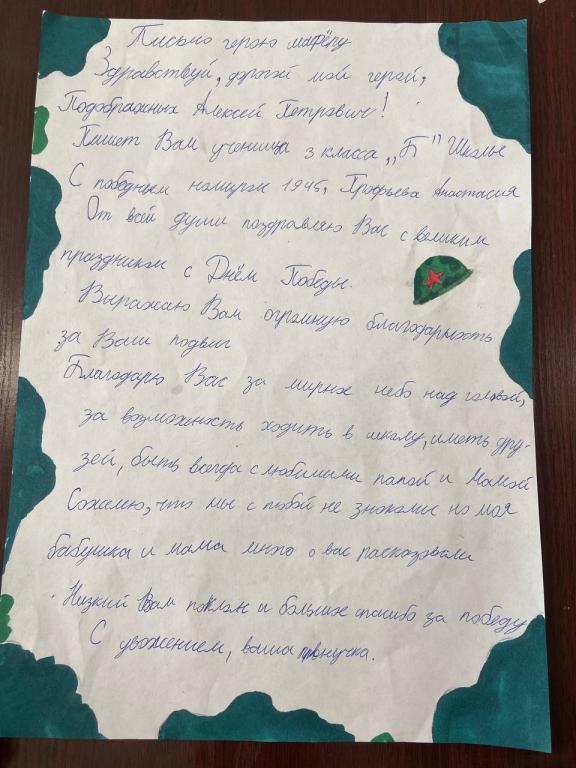 Письмо герою
Здравствуй, дорогой мой герой,
Подображных Алексей Петрович!
Пишет Вам ученица 3 класса „Б" Школы
С победным номером 1945, Анастасия
От всей души поздравляю Вас с великим
праздником с Днём Победы.
Выражаю Вам огромную благодарность
за Ваш подвиг
Благодарю Вас за мирное небо над головой,
за возможность ходить в школу, иметь дру-
зей, быть всегда с любимыми папой и Мамой
Сожалею, что мы с тобой не знакомы но моя
бабушка и мама много о вас рассказывали
Низкий Вам поклон и большое спасибо за победу
С уважением, ваша правнучка.